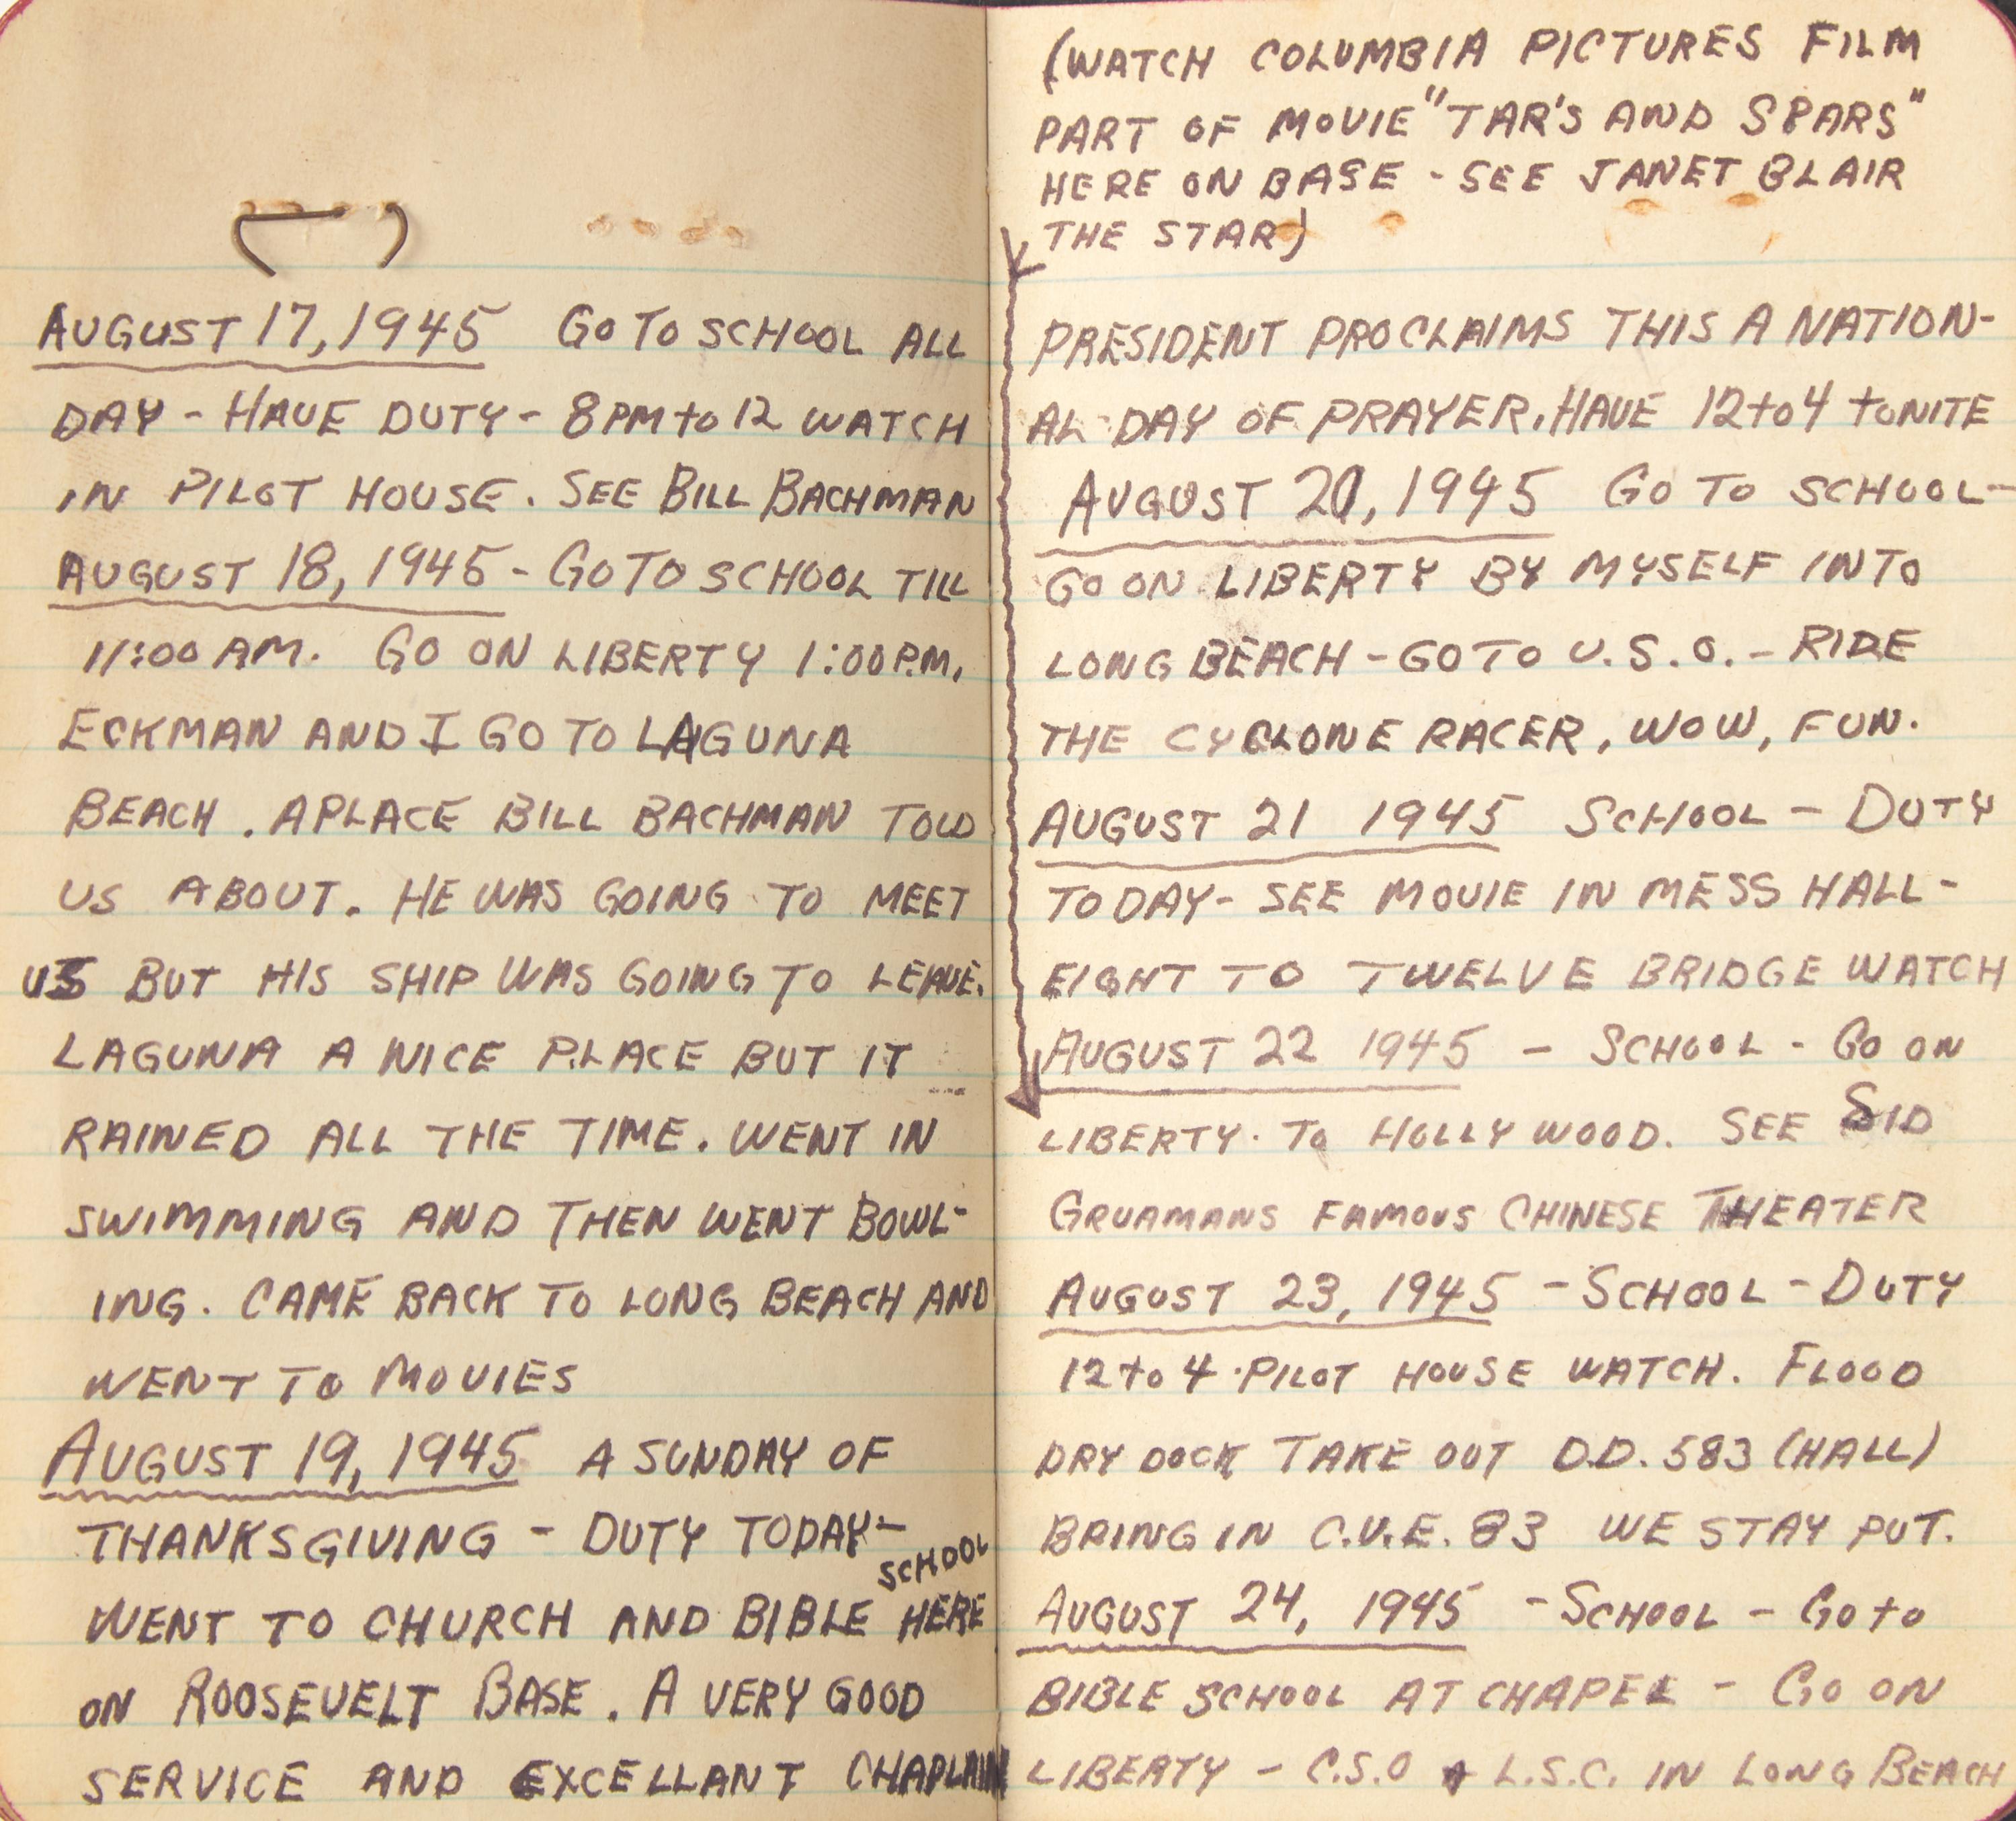 AUGUST 17, 1945 GO TO SCHOOL ALL
DAY - HAVE DUTY - 8 PM to 12 WATCH
IN PILOT HOUSE. SEE BILL BACHMAN
AUGUST 18, 1945 - GO TO SCHOOL TILL
11:00 AM. GO ON LIBERTY 1:00 P.M.
ECKMAN AND I GO TO LAGUNA
BEACH. A PLACE BILL BACHMAN TOLD
US ABOUT. HE WAS GOING TO MEET
US BUT HIS SHIP WAS GOING TO LEAVE.
LAGUNA A NICE PLACE BUT IT
RAINED ALL THE TIME. WENT IN
SWIMMING AND THEN WENT BOWL-
ING. CAME BACK TO LONG BEACH AND
WENT TO MOVIES
AUGUST 19, 1945 A SUNDAY OF
THANKSGIVING - DUTY TODAY -
SCHOOL
WENT TO CHURCH AND BIBLE HERE
ON ROOSEVELT BASE. A VERY GOOD
SERVICE AND EXCELLANT CHAPLAIN
(WATCH COLUMBIA PICTURES FILM
PART OF MOVIE "TAR'S AND SPARS"
HERE ON BASE - SEE JANET BLAIR
THE STAR)
PRESIDENT PROCLAIMS THIS A NATION-
AL DAY OF PRAYER. HAVE 12 to 4 toNITE
AUGUST 20, 1945 GO TO SCHOOL -
GO ON LIBERTY BY MYSELF INTO
LONG BEACH - GO TO U.S.O. - RIDE
THE CYCLONE RACER, WOW, FUN.
AUGUST 21 1945 SCHOOL - DUTY
TODAY - SEE MOVIE IN MESS HALL -
EIGHT TO TWELVE BRIDGE WATCH
AUGUST 22 1945 - SCHOOL - GO ON
LIBERTY. TO HOLLYWOOD. SEE SID
GRUAMANS FAMOUS CHINESE THEATER
AUGUST 23, 1945 - SCHOOL - DUTY
12 to 4 PILOT HOUSE WATCH. FLOOD
DRY DOCK TAKE OUT D.D. 583 (HALL)
BRING IN C.V.E. 83 WE STAY PUT.
AUGUST 24, 1945 - SCHOOL - GO to
BIBLE SCHOOL AT CHAPEL - GO ON
LIBERTY - C.S.O + L.S.C. IN LONG BEACH